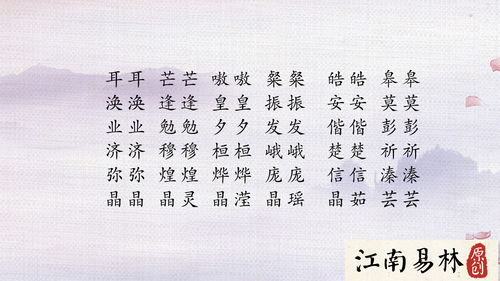 耳耳 芒芒 嗷嗷 粲粲 皓皓 皋皋
涣涣 逢逢 皇皇 振振 安安 莫莫
业业 勉勉 夕夕 发发 偕偕 彭彭
济济 穆穆 桓桓 峨峨 楚楚 祈祈
弥弥 煌煌 烨烨 庞庞 信信 溱溱
晶晶 晶灵 晶滢 晶瑶 晶茹 芸芸
江南易林 原创